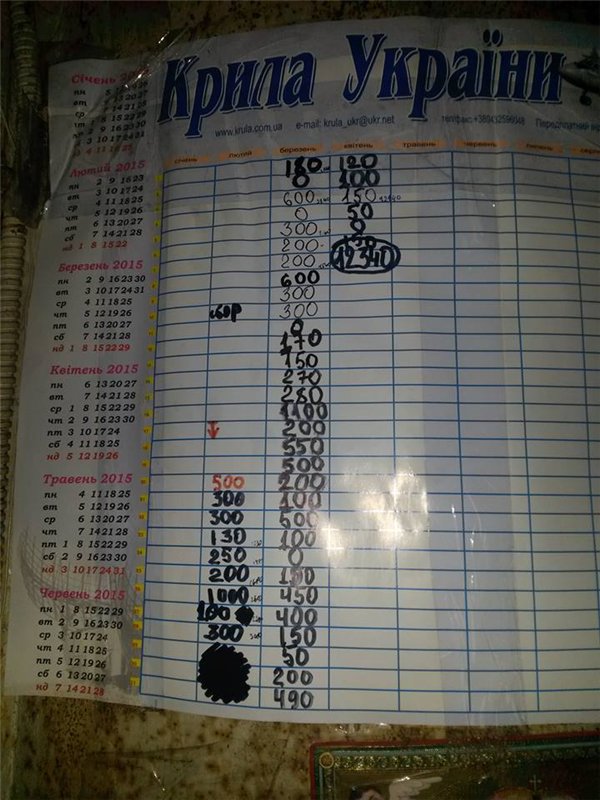 Січень
пн
вт
ср
чт
пт
сб
нд
Лютий 2015
пн 2 9 16 23
вт 3 10 17 24
ср 4 11 18 25
чт 5 12 19 26
пт 6 13 20 27
сб 7 14 21 28
нд 1 8 15 22
Березень 2015
пн 2 9 16 23 30
вт 3 10 17 24 31
ср 4 11 18 25
чт 5 12 19 26
пт 6 13 20 27
сб 7 14 21 28
нд 1 8 15 22 29
Квітень 2015
пн 6 13 20 27
вт 7 14 21 28
ср 1 8 15 22 29
чт 2 9 16 23 30
пт 3 10 17 24
сб 4 11 18 25
нд 5 12 19 26
Травень 2015
пн 4 11 18 25
вт 5 12 19 26
ср 6 13 20 27
чт 7 14 21 28
пт 1 8 15 22 29
сб 2 9 16 23 30
нд 3 10 17 24 31
Червень 2015
пн 1 8 15 22 29
вт 2 9 16 23 30
ср 3 10 17 24
чт 4 11 18 25
пт 5 12 19 26
сб 6 13 20 27
нд 7 14 21 28
Крила України
www.krula.com.ua e-mail: krula_ukr@ukr.net
січень лютий березень квітень травень червень липень
180 120
0 100
600 150
0 50
300 0
200
200 12340
600
300
збір 300
0
170
150
270
280
1100
200
550
500
500 200
300 100
300 500
130 100
250 0
200 150
1000 450
100 400
300 150
50
200
490